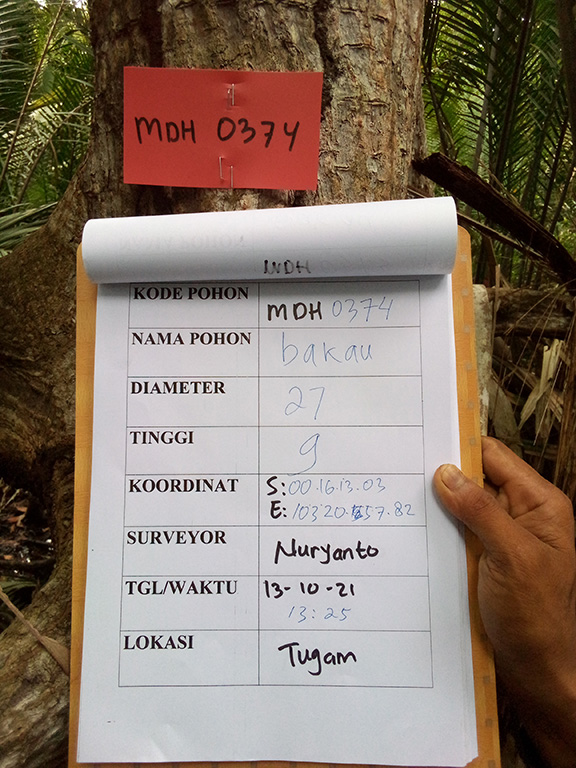 MDH 0374
MDH
KODE POHON MDH 0374
NAMA POHON bakau
DIAMETER 27
TINGGI 9
KOORDINAT S: 00.16.13.03
E: 103.20.57.82
SURVEYOR Nuryanto
TGL/WAKTU 13-10-21
13:25
LOKASI Tugam